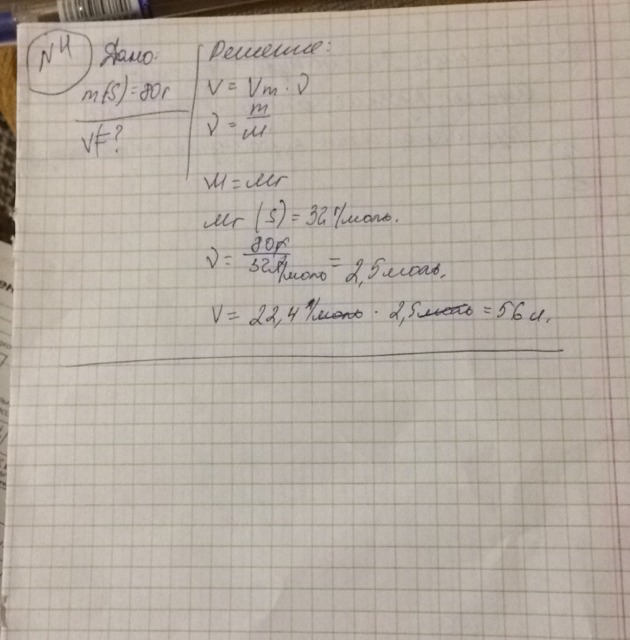 N4
Дано:
m(S)=80г
V=?
Решение:
V = Vm · ν
ν = m/M
M = Mr
Mr (S) = 32 г/моль.
ν = 80г / 32г/моль = 2,5 моль.
V = 22,4 л/моль · 2,5 моль = 56 л.